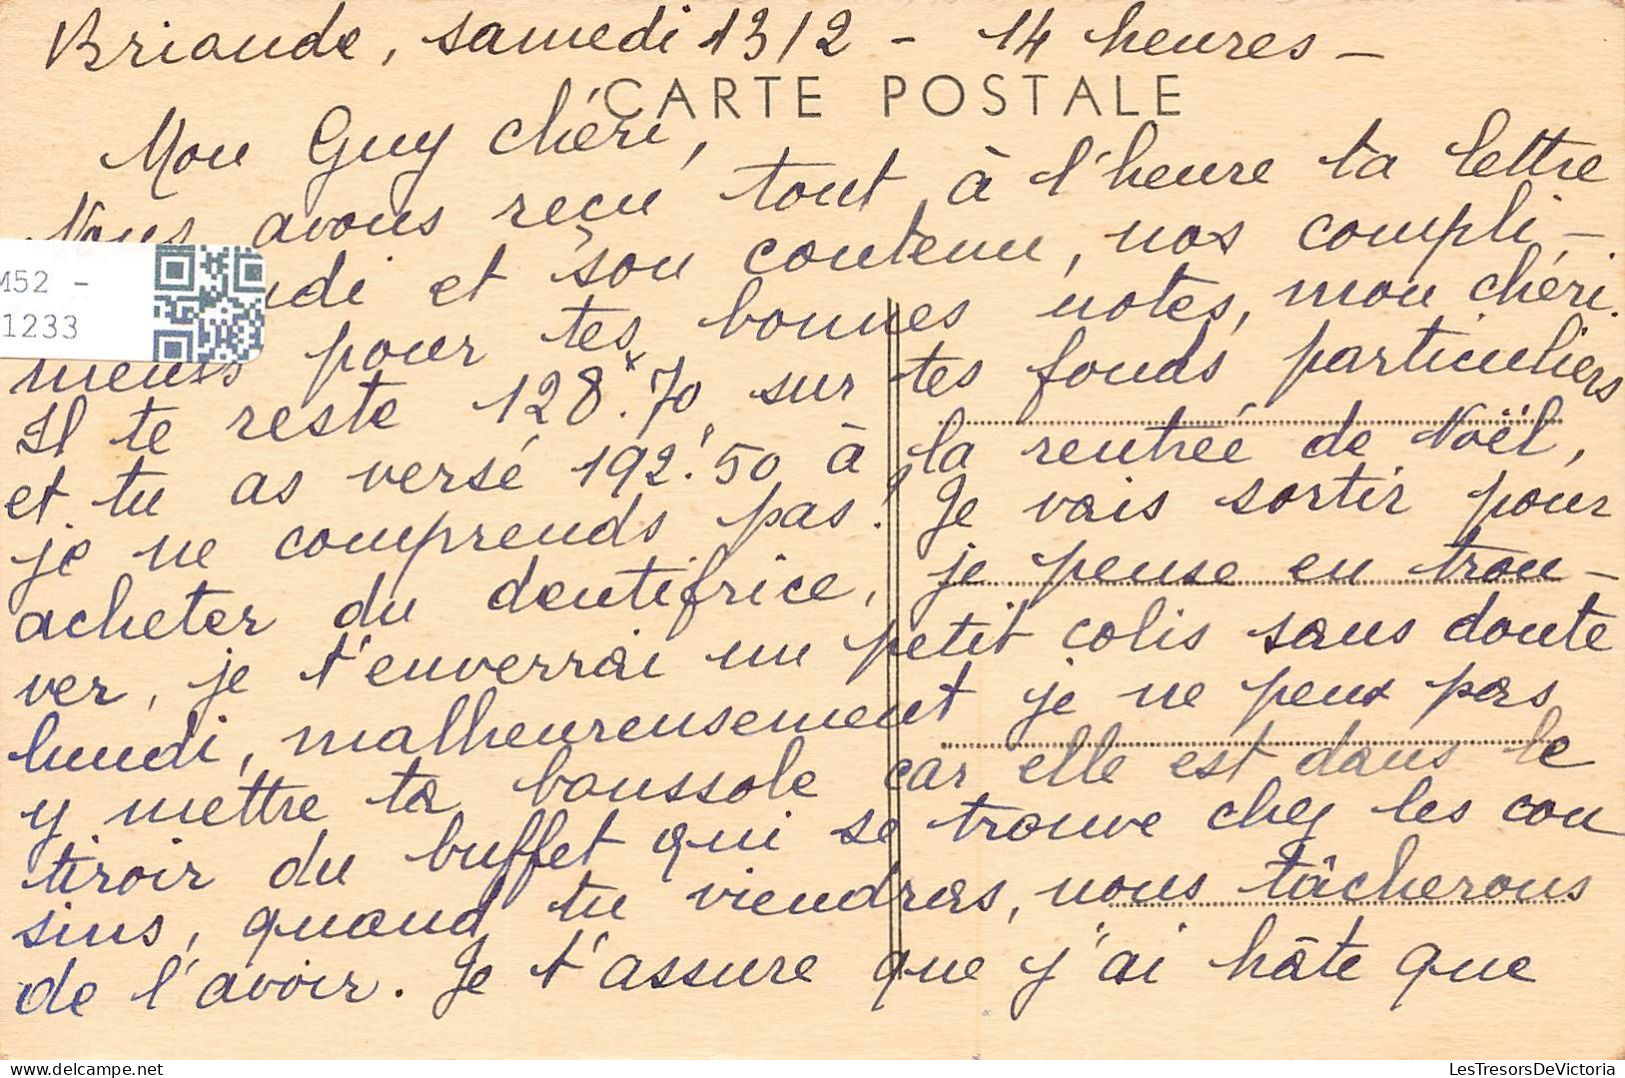 Brioude, samedi 13/2 - 14 heures -
CARTE POSTALE
Mon Guy chéri,
Nous avons reçu tout à l'heure ta lettre
di et son contenu, nos compli-
ments pour tes bonnes notes, mon chéri.
Il te reste 128.70 sur tes fonds particuliers
et tu as versé 192.50 à la rentrée de Noël,
je ne comprends pas! Je vais sortir pour
acheter du dentifrice, je pense en trou-
ver, je t'enverrai un petit colis sans doute
lundi, malheureusement je ne peux pas
y mettre ta boussole car elle est dans le
tiroir du buffet qui se trouve chez les cou
sins, quand tu viendras, nous tâcherons
de l'avoir. Je t'assure que j'ai hâte que
M52 -
1233
LesTresorsDeVictoria